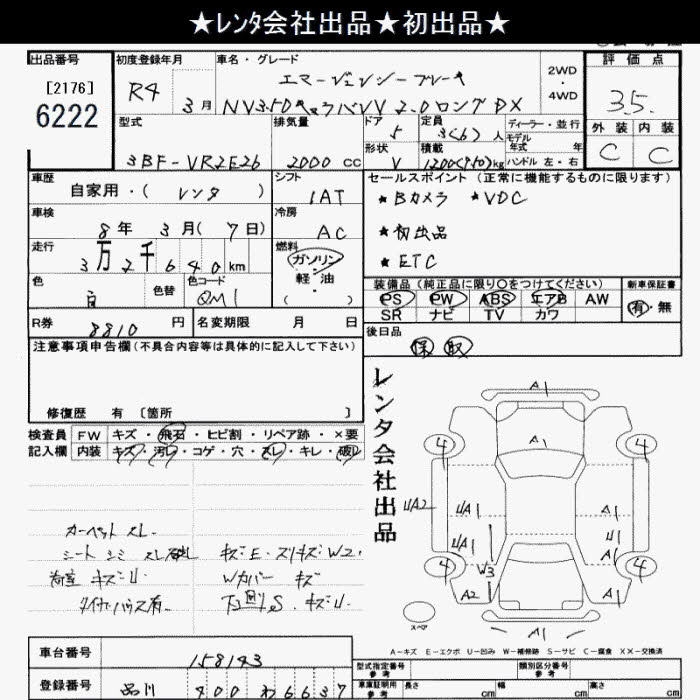 ★レンタ会社出品★初出品★
出品番号
[2176]
6222
初度登録年月
R4
3月
車名・グレード
エマージェンシーブレーキ
NV350キャラバンV 2.0ロングDX
2WD
・
4WD
評価点
3.5
外装 内装
C C
型式
3BF-VR2E26
排気量
2000 cc
ドア
5
定員
3(6)人
形状
V
積載
kg
ディーラー・並行
モデル
年式 年
ハンドル 左・右
車歴
自家用・( レンタ )
シフト
IAT
車検
8年 3月(7日)
冷房
AC
走行
3万2千640km
燃料
ガソリン
軽・油
・( )
色
白
色替
色コード
QM1
R券
8810 円
名変期限 月 日
セールスポイント (正常に機能するものに限ります)
★Bカメラ ★VDC
★初出品
★ETC
装備品 (純正品に限り○をつけてください)
新車保証書
PS PW ABS エアB AW
SR ナビ TV カワ
有・無
後日品
保 取
注意事項申告欄(不具合内容等は具体的に記入して下さい)
修復歴 有〔箇所 〕
検査員
記入欄
FW キズ・飛石・ヒビ割・リペア跡・×要
内装 キズ・汚レ・コゲ・穴・スレ・キレ・破レ
カーペット スレ
シート シミ スレ 破レ
荷室 キズ・U
タイヤハウス有
キズ・E・スリキズ・W2
Wカバー キズ
下回りS キズ・U
レンタ会社出品
A1
A1
4 4
UA2 UA1 A1
UA1 U1
4 4
W3
A2 A1
A1
スペア
A-キズ E-エクボ U-凹み W-補修跡 S-サビ C-腐食 XX-交換済
車台番号
158143
登録番号
品川 400 わ 6637
型式指定番号
参考
類別区分番号
参考
車庫証明用
参考
長さ cm 幅 cm 高さ cm